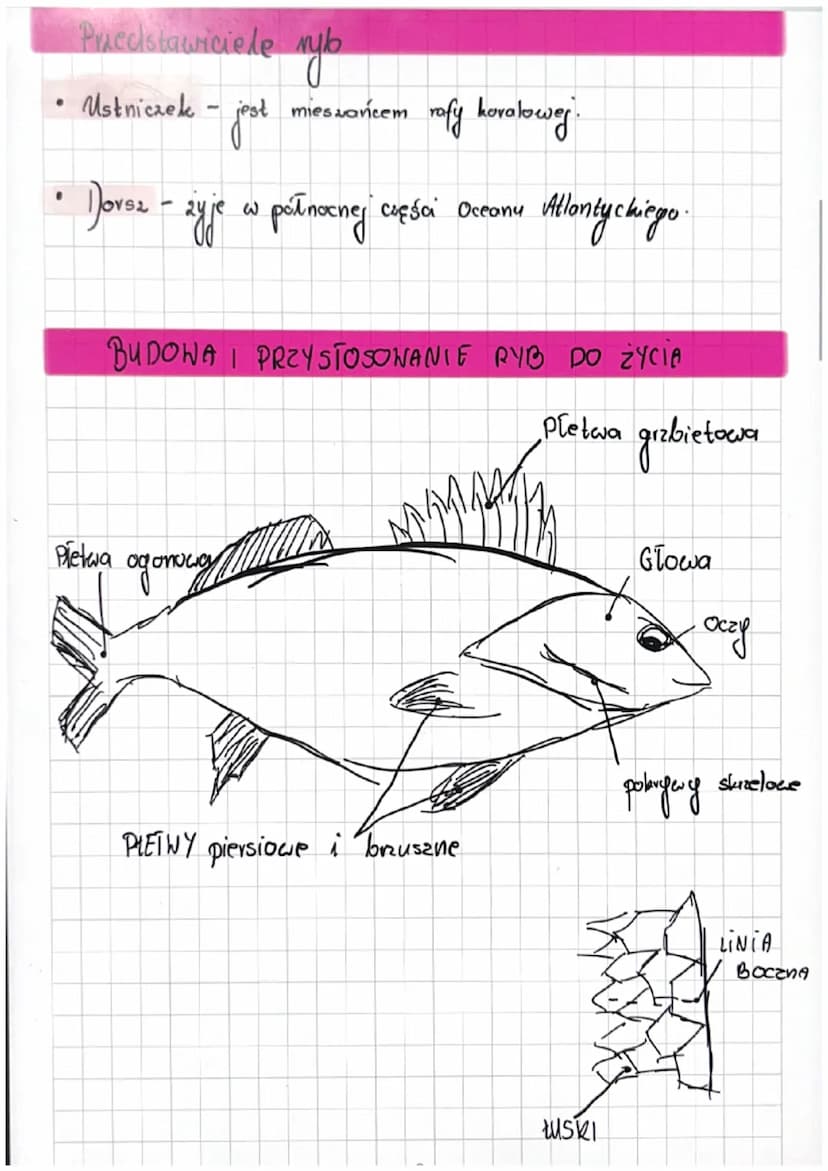 Przedstawiciele ryb
• Ustniczek – jest mieszkańcem rafy koralowej.
• Dorsz – żyje w północnej części Oceanu Atlantyckiego.
BUDOWA I PRZYSTOSOWANIE RYB DO ŻYCIA
Płetwa grzbietowa
Płetwa ogonowa
Głowa
oczy
pokrywy skrzelowe
PŁETWY piersiowe i brzuszne
LINIA
BOCZNA
ŁUSKI